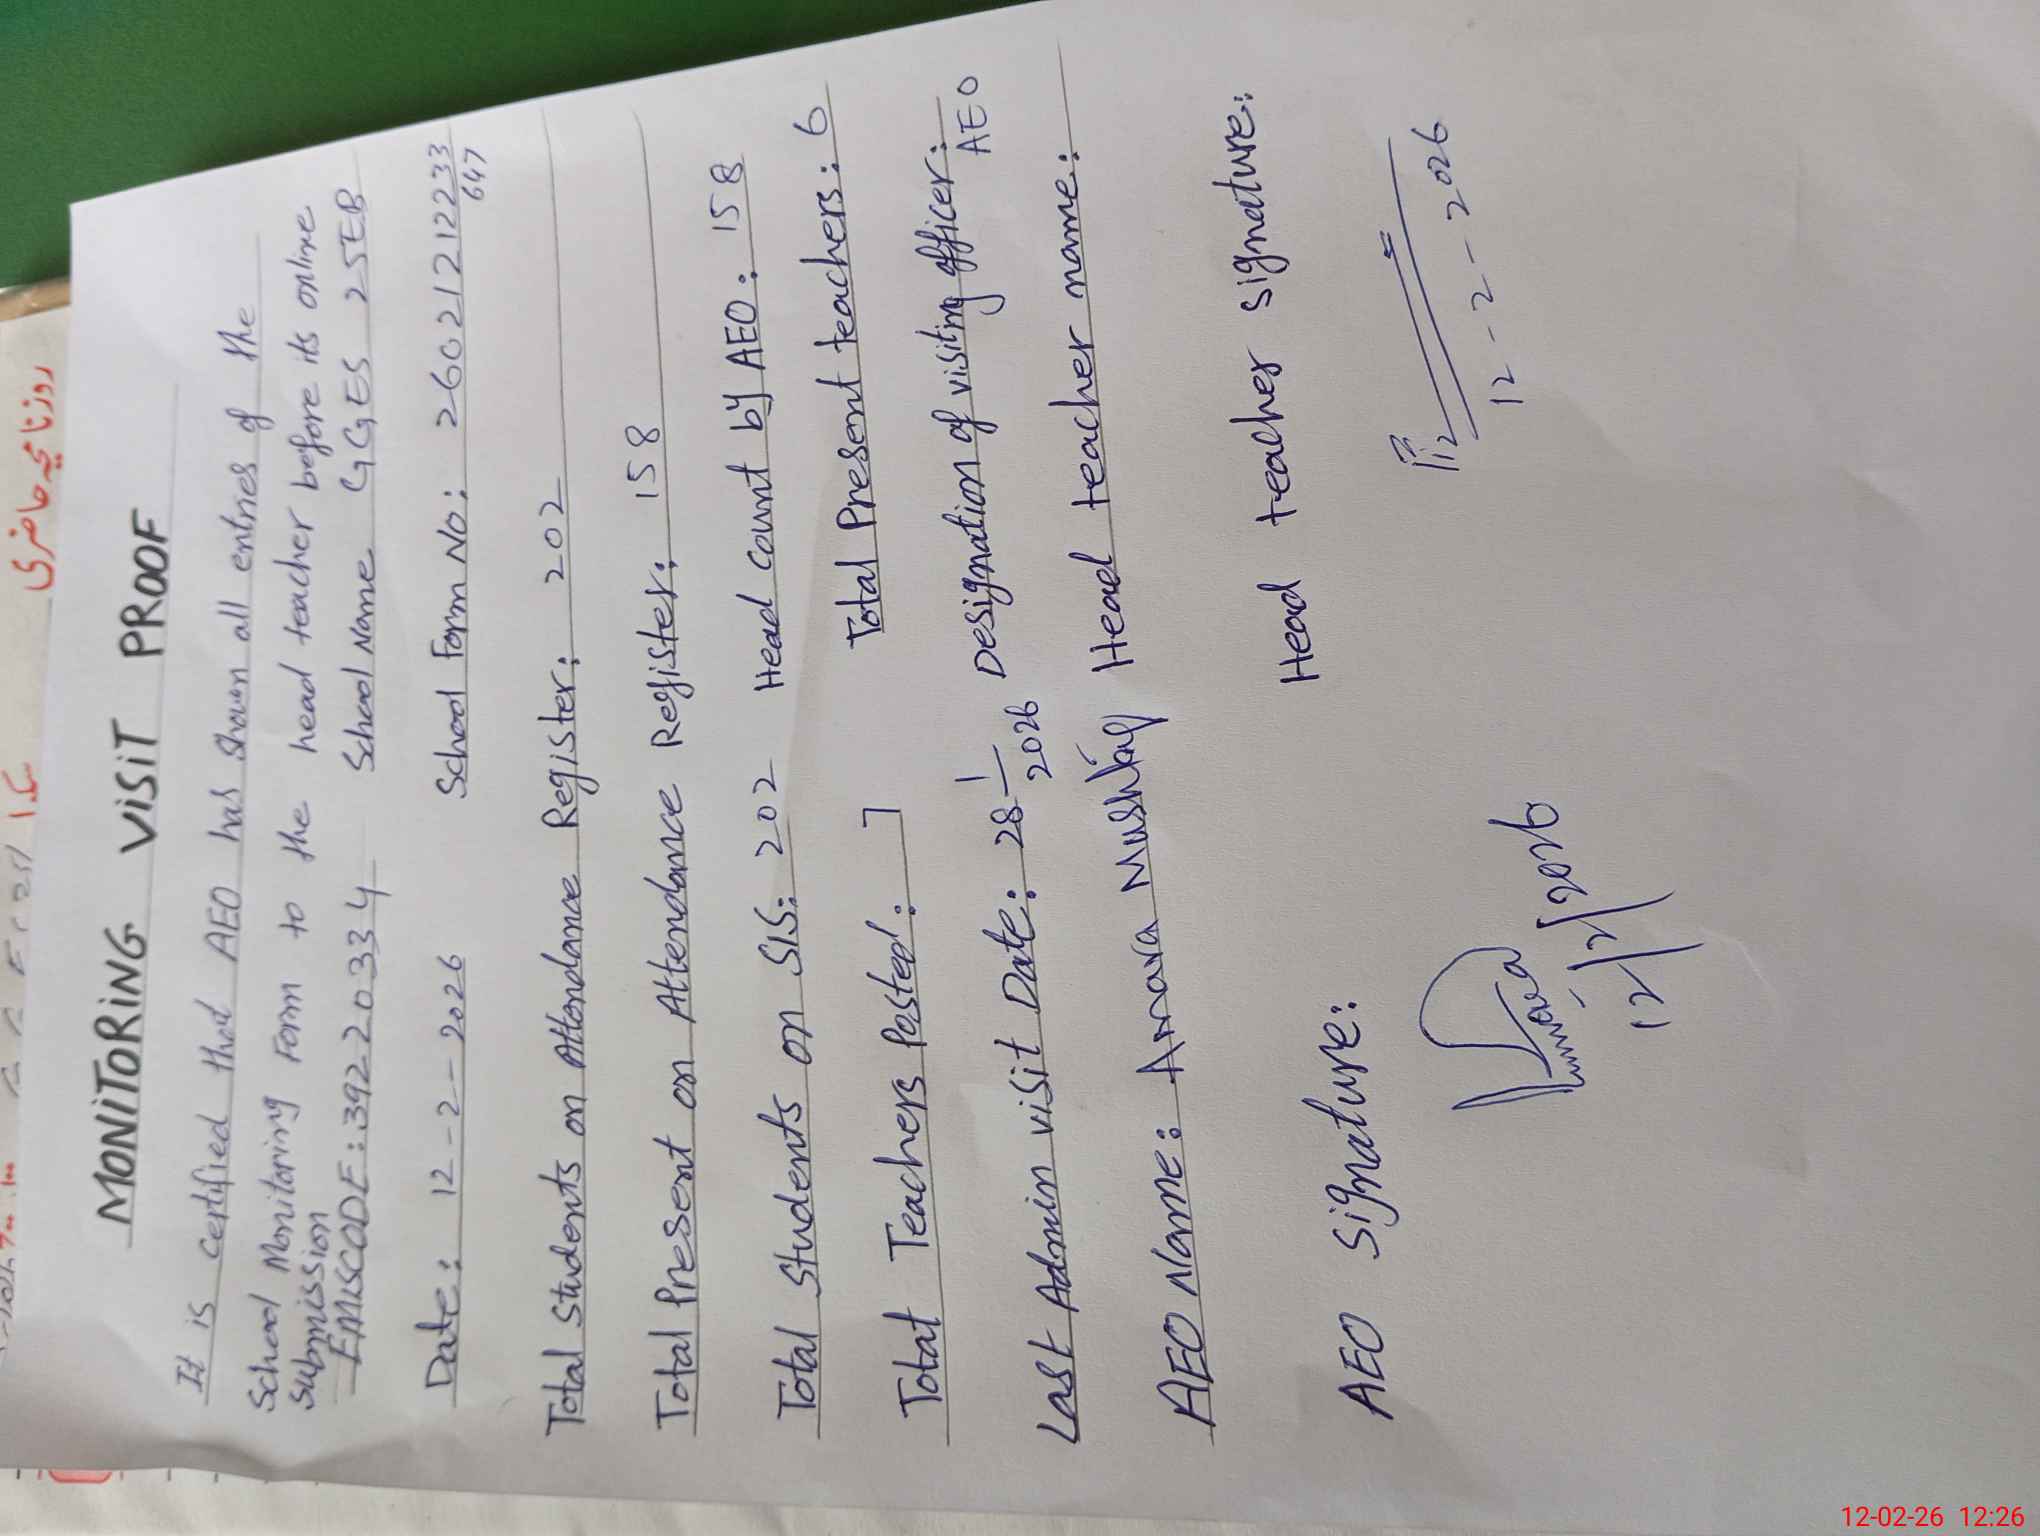 روزنامچہ حاضری
MONITORING VISIT PROOF
It is certified that AEO has shown all entries of the
School Monitoring Form to the head teacher before its online
submission
EMISCODE: 39220334 School Name GGES 25EB
Date: 12-2-2026 School Form No: 260212122233
647
Total Students on Attendance Register: 202
Total Present on Attendance Register: 158
Total Students on SIS: 202 Head count by AEO: 158
Total Teachers Posted: 7 Total Present teachers: 6
Last Admin visit Date: 28 1/2026 Designation of visiting officer: AEO
AEO Name: Amara Mushtaq Head teacher name:
AEO Signature: Head teacher signature:
12/2/2026
12-2-2026
12-02-26 12:26